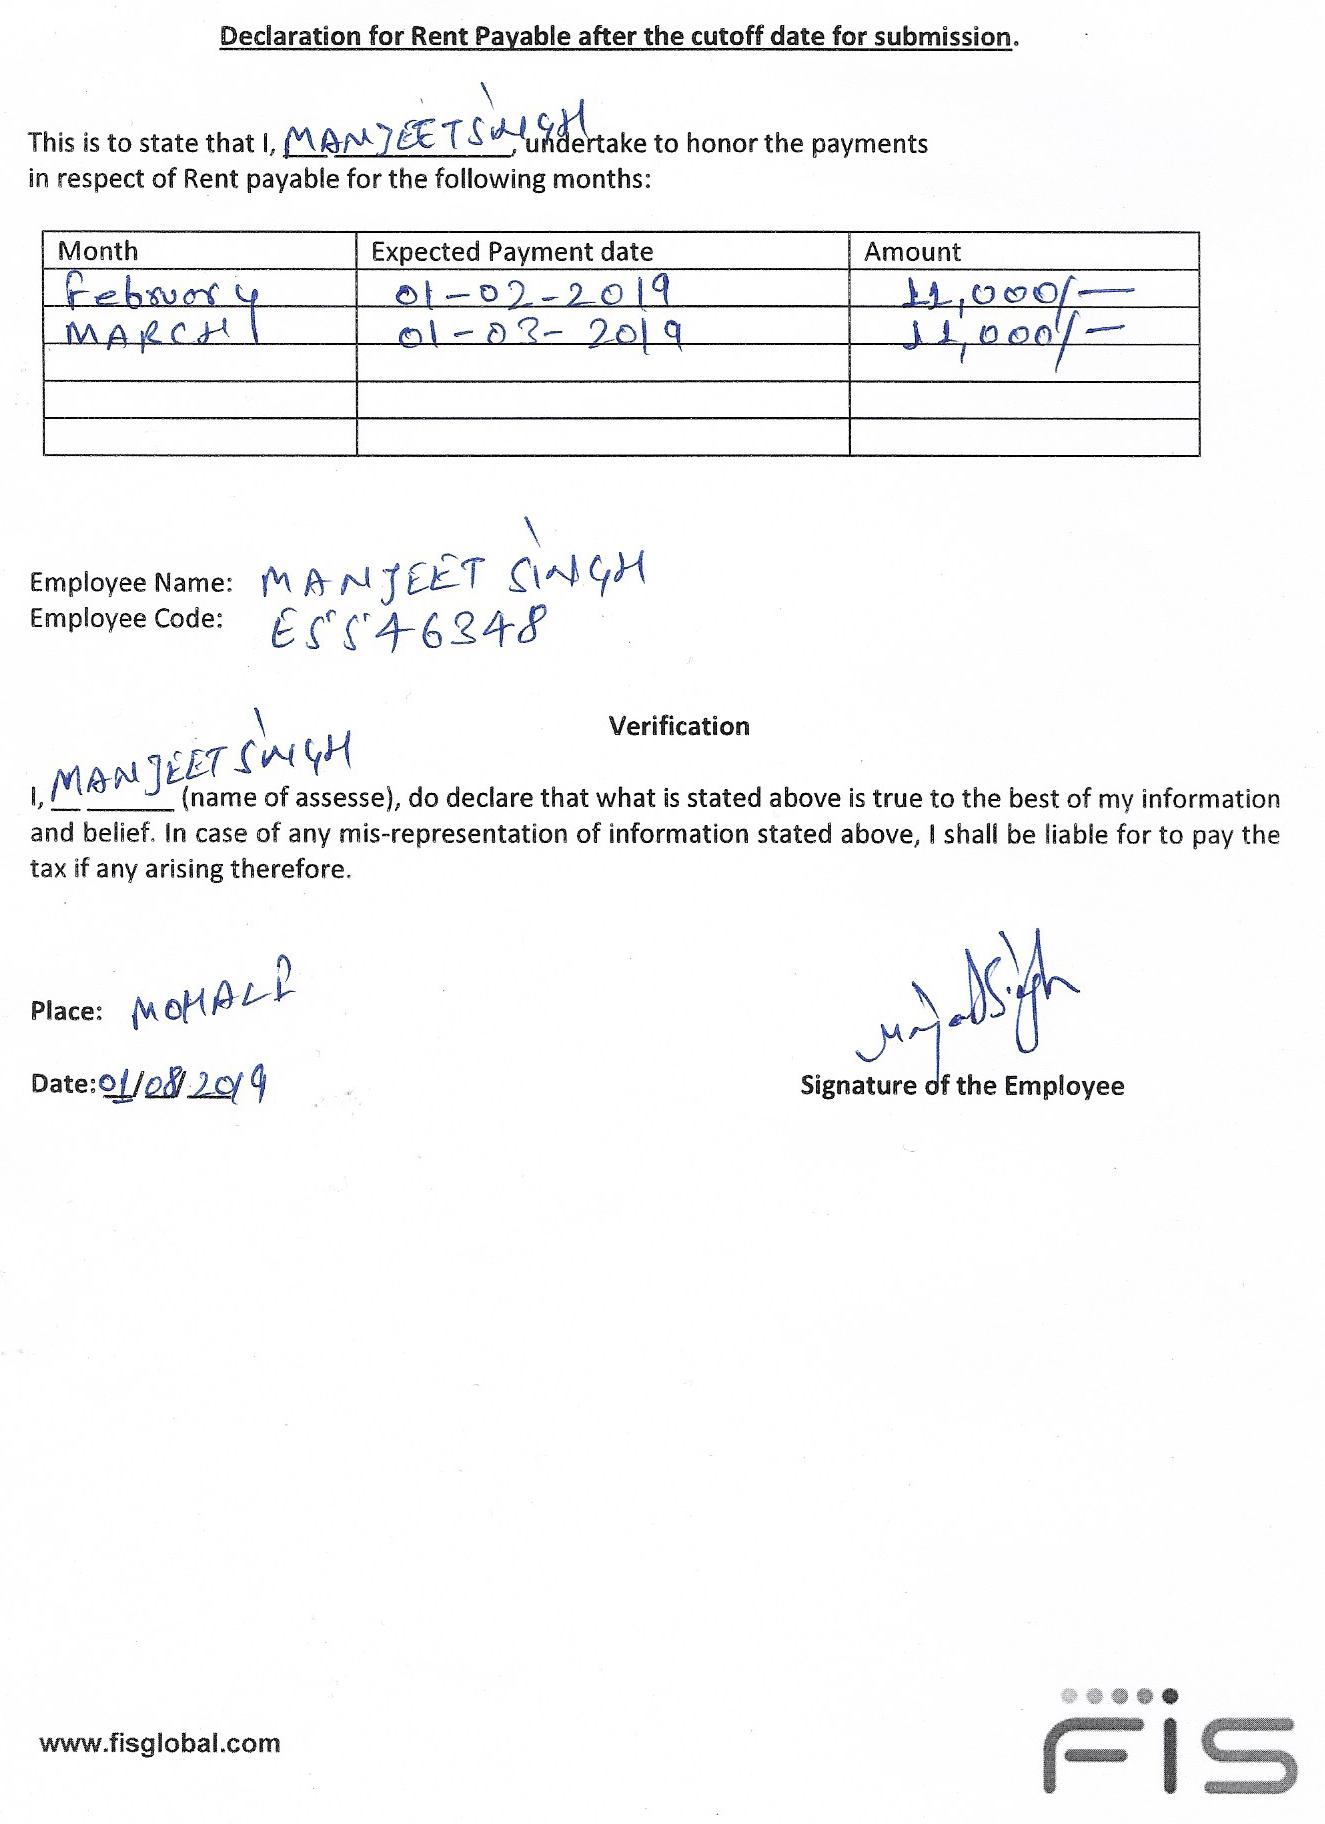 Declaration for Rent Payable after the cutoff date for submission.
This is to state that I, MANJEET SINGH, undertake to honor the payments
in respect of Rent payable for the following months:
Month Expected Payment date Amount
February 01-02-2019 11,000/-
MARCH 01-03-2019 11,000/-
Employee Name: MANJEET SINGH
Employee Code: E5546348
Verification
I, MANJEET SINGH (name of assesse), do declare that what is stated above is true to the best of my information
and belief. In case of any mis-representation of information stated above, I shall be liable for to pay the
tax if any arising therefore.
Place: MOHALI
Manjeet Singh
Date: 01/08/2019
Signature of the Employee
www.fisglobal.com
FIS